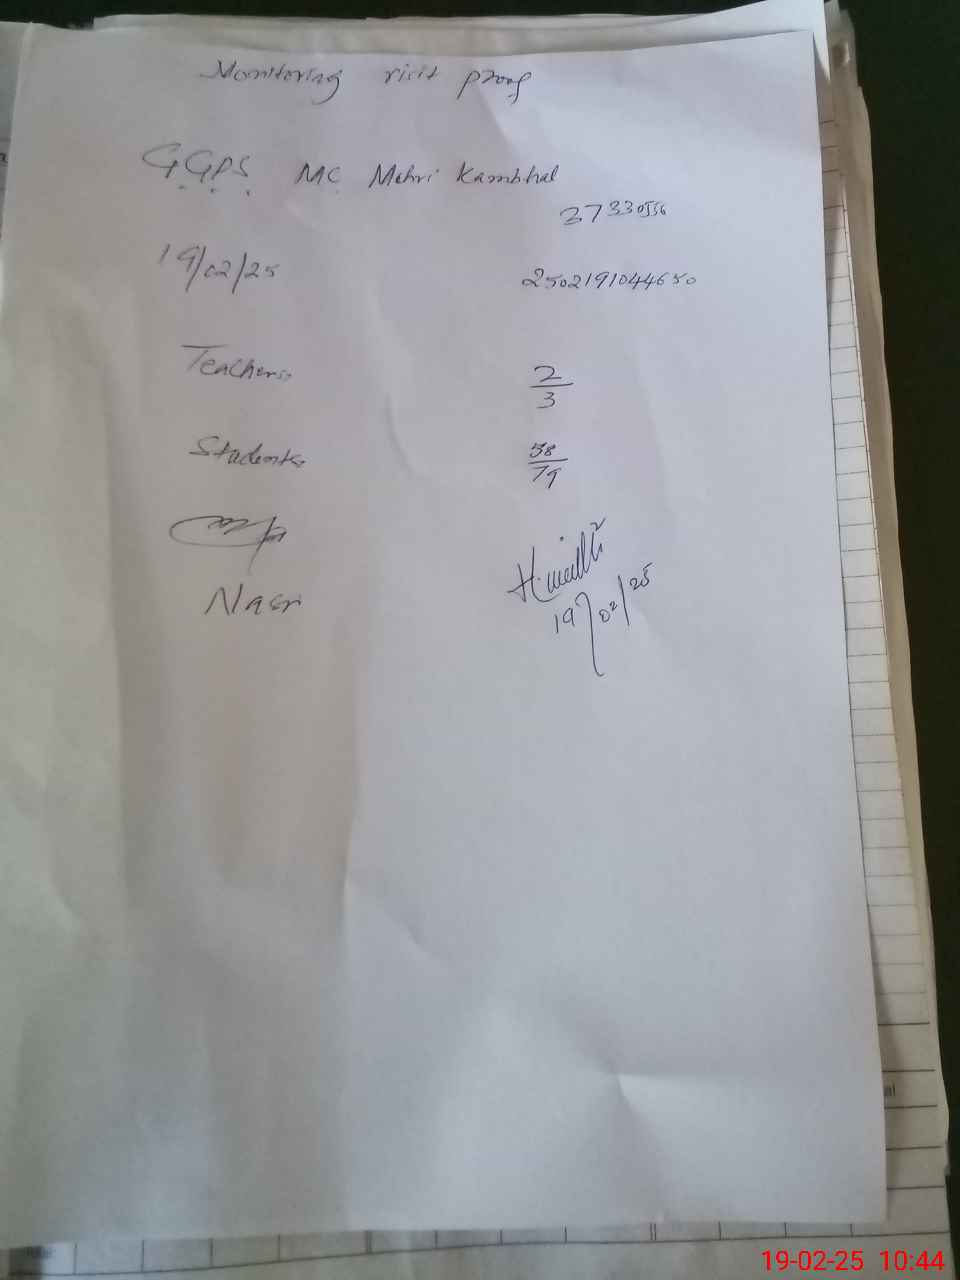 Monitoring visit proof
G.G.P.S. MC Mehri Kambhal
37330556
19/02/25 2502191044650
Teachers 2/3
Students 58/79
Nasri
19/02/25
19-02-25 10:44